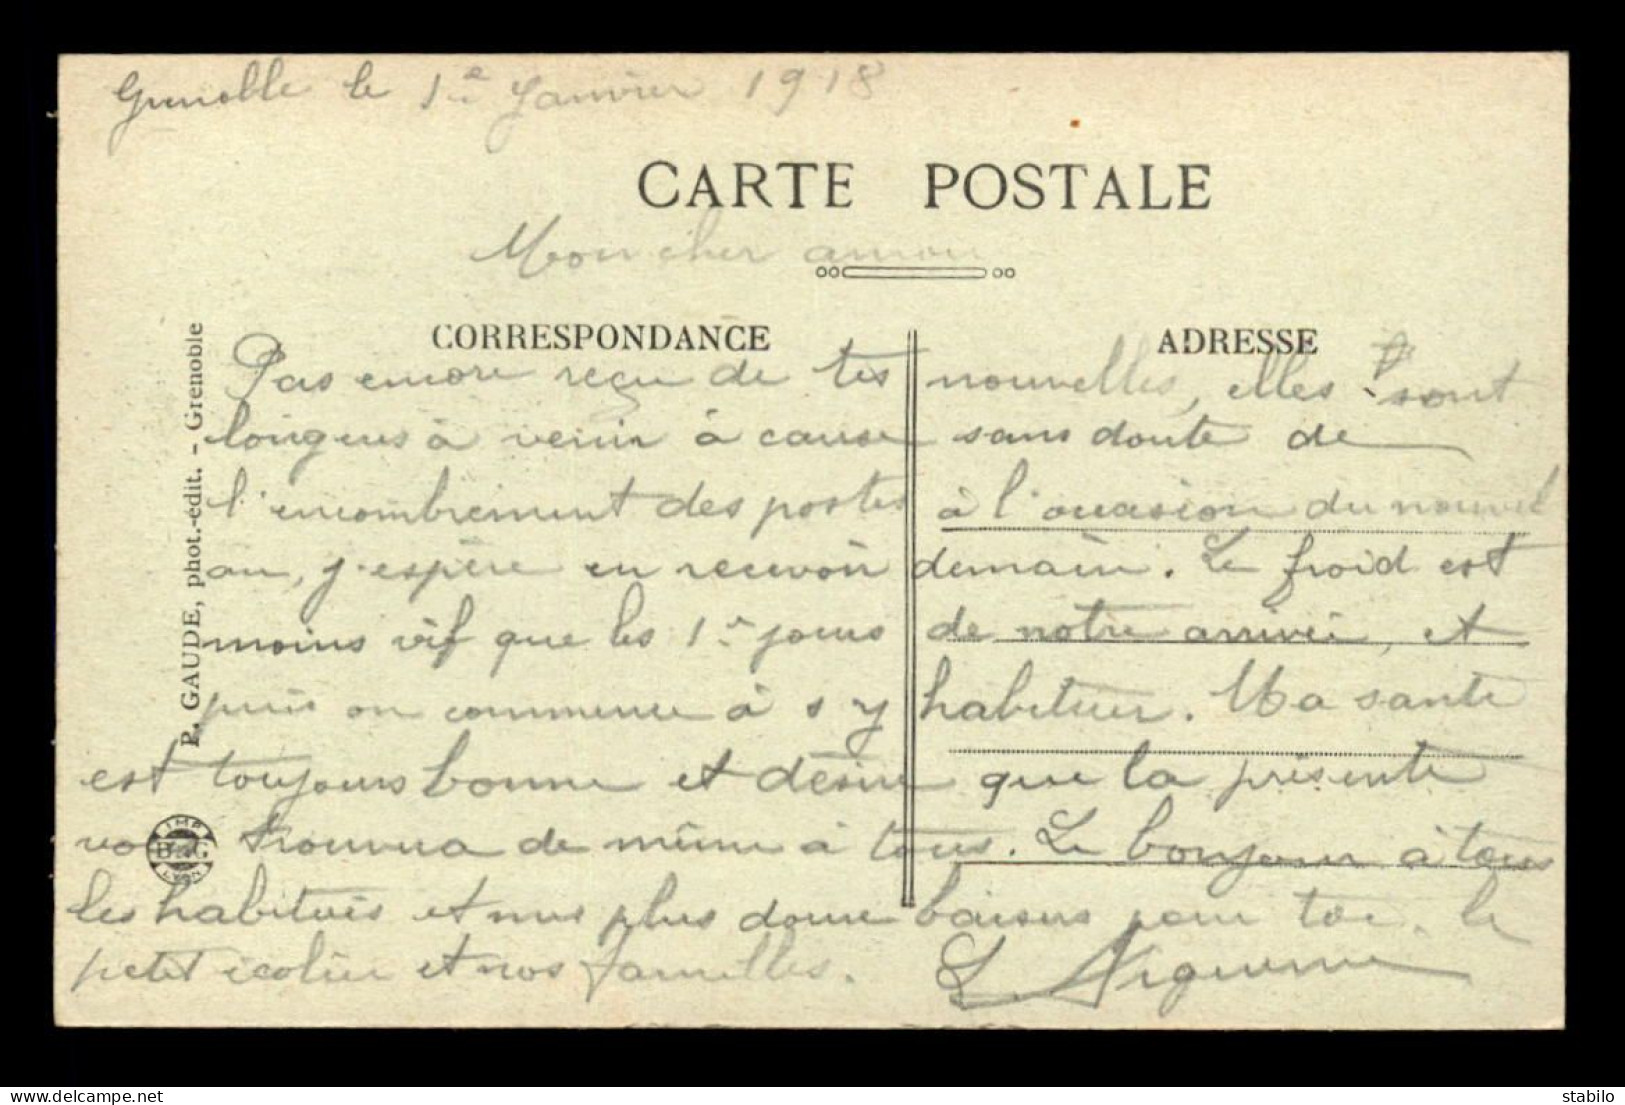 Grenoble le 1e Janvier 1918
CARTE POSTALE
Mon cher amour
CORRESPONDANCE
ADRESSE
Pas encore reçu de tes nouvelles, elles sont
longues à venir à cause sans doute de
l'encombrement des postes à l'occasion du nouvel
an, j'espère en recevoir demain. Le froid est
moins vif que les 1rs jours de notre arrivée, et
puis on commence à s'y habituer. Ma santé
est toujours bonne et désire que la présente
vous trouvera de même à tous. Le bonjour à tous
les habitués et mes plus doux baisers pour toi, le
petit écolier et nos familles.
P. GAUDE, phot.-édit. - Grenoble
IMP
B&C.
LYON
delcampe.net
stabilo